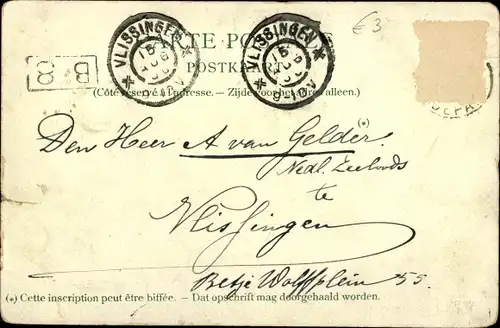 €3
CARTE POSTALE
POSTKAART
VLISSINGEN
VLISSINGEN
B 8
(Côté réservé à l'adresse. – Zijde voor het adres alleen.)
(*)
Den Heer A van Gelder
Nedl. Zeeloods
te
Vlissingen
Betje Wolffplein 55.
(*) Cette inscription peut être biffée. – Dat opschrift mag doorgehaald worden.